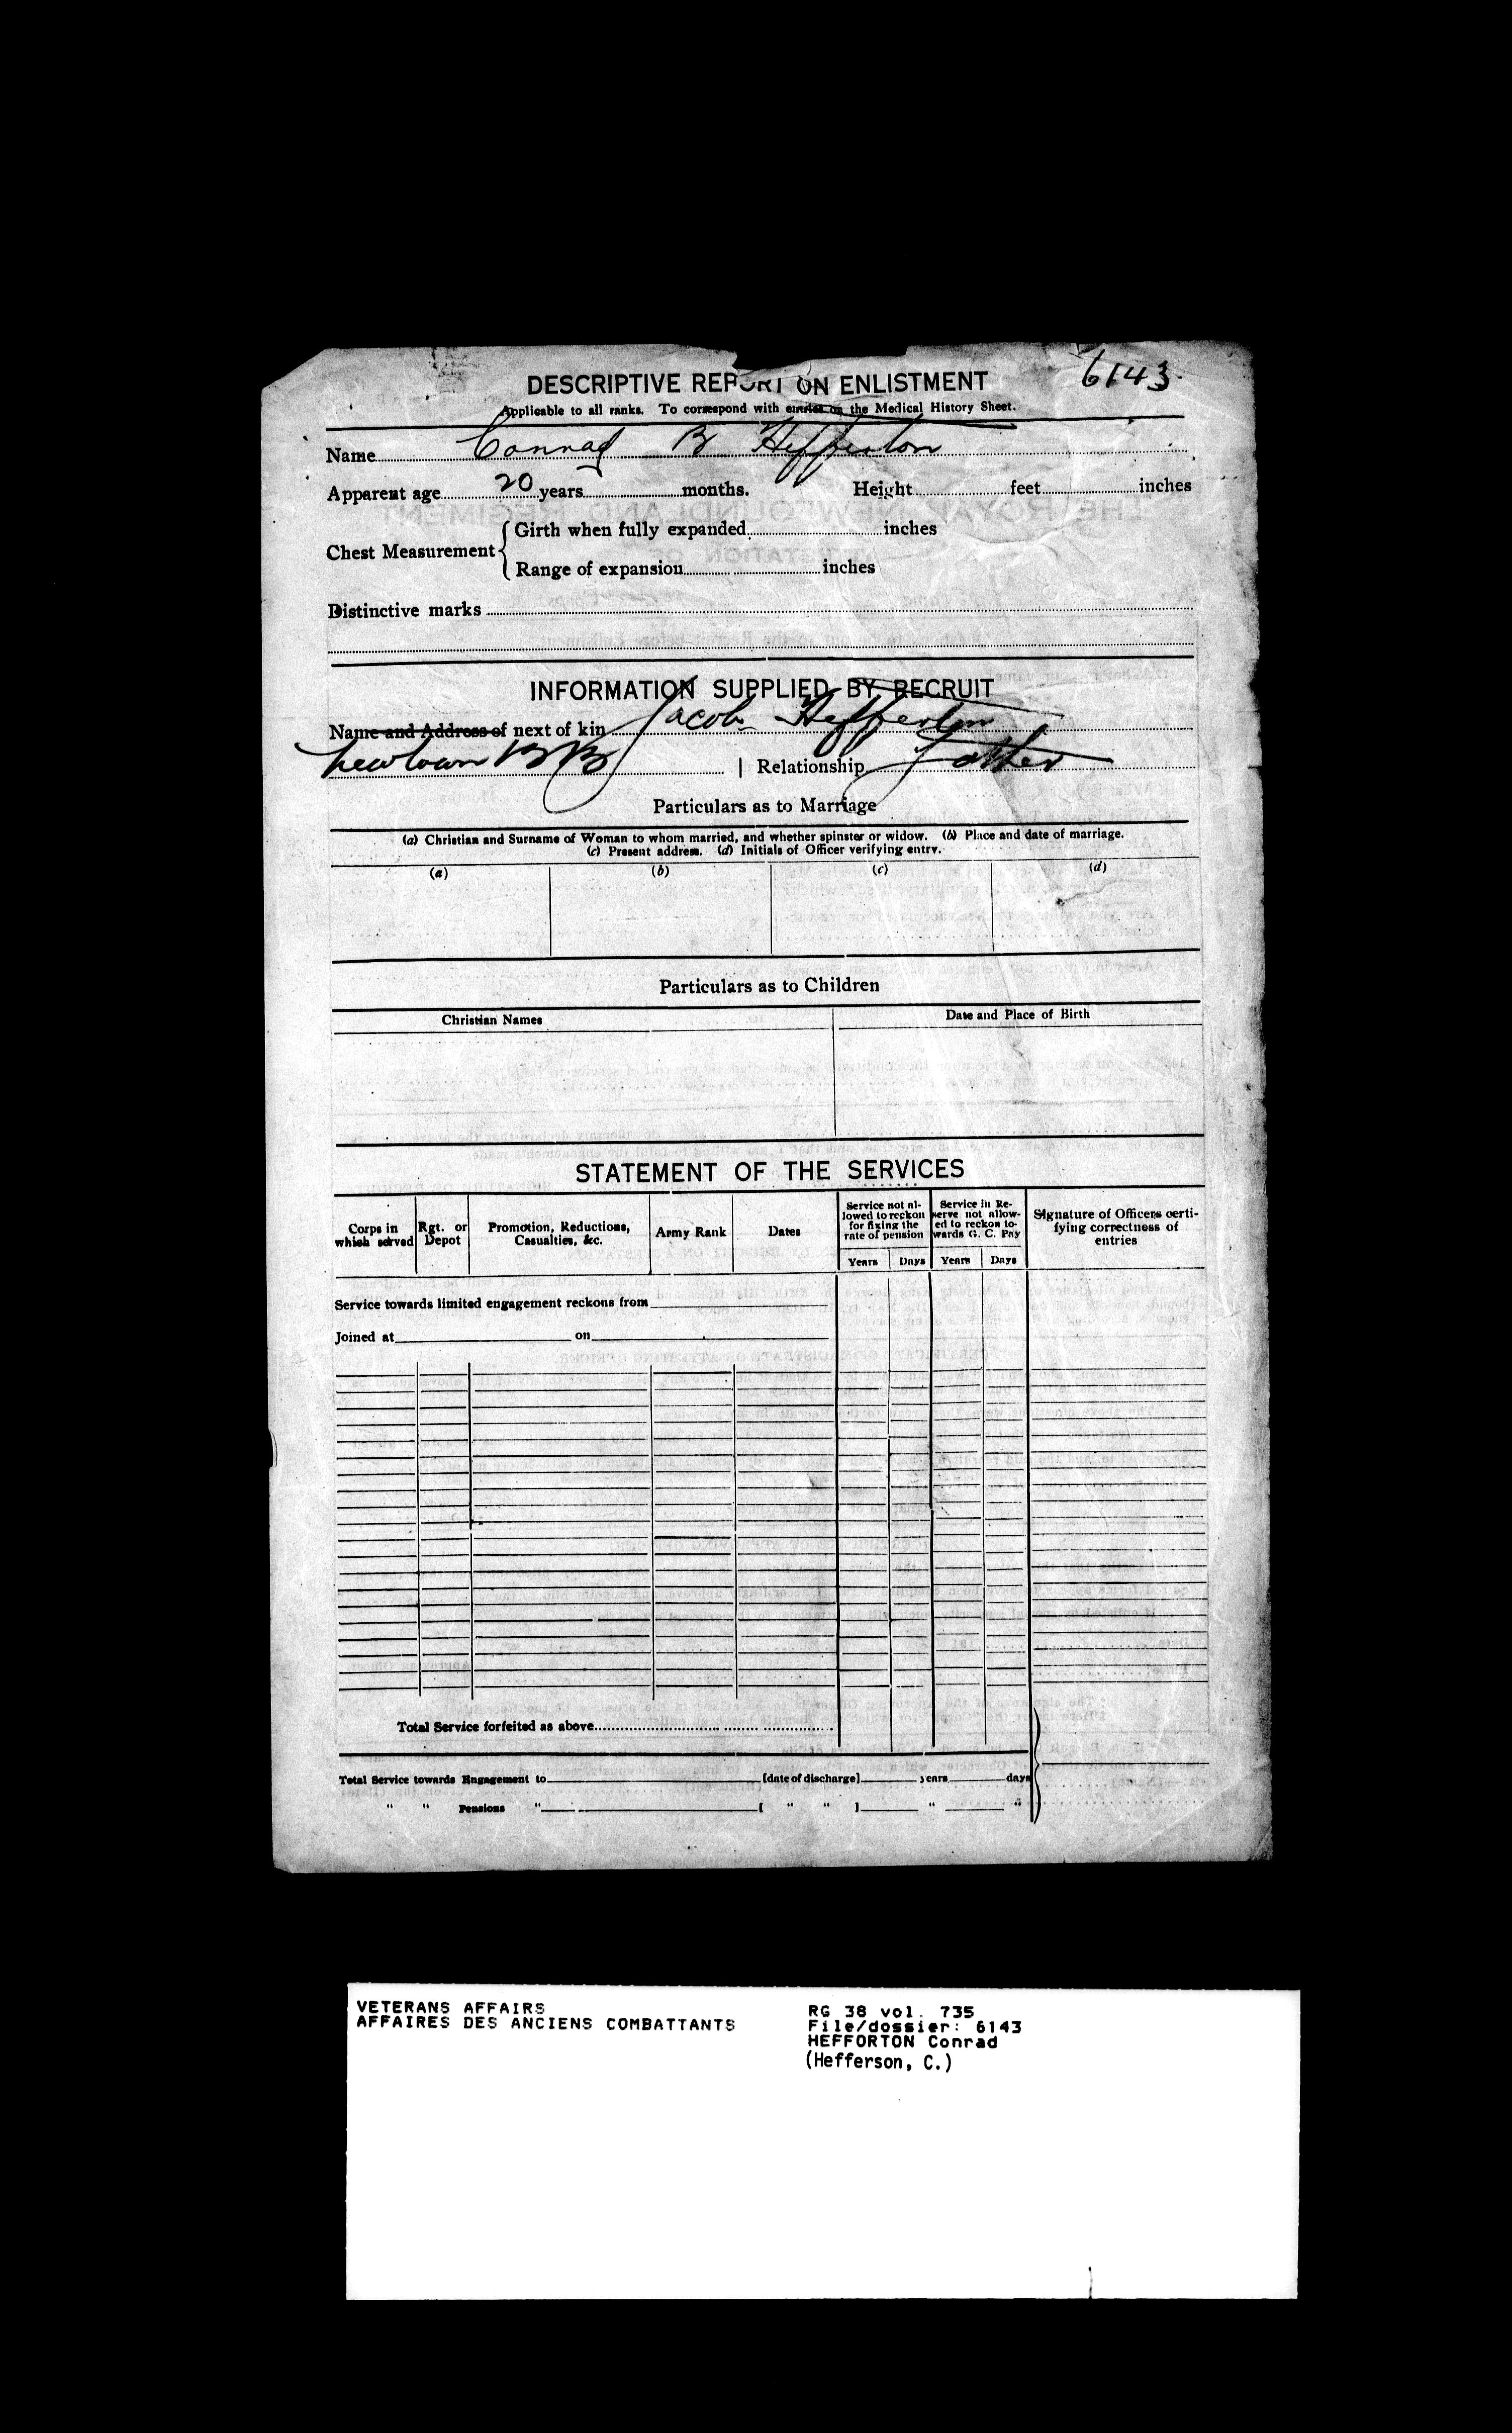 DESCRIPTIVE REPORT ON ENLISTMENT 6143.
Applicable to all ranks. To correspond with entries on the Medical History Sheet.
Name Conrad B Hefferton
Apparent age 20 years months. Height feet inches
Chest Measurement { Girth when fully expanded inches
Range of expansion inches
Distinctive marks
INFORMATION SUPPLIED BY RECRUIT
Name and Address of next of kin Jacob Hefferton
Newtown B B | Relationship Father
Particulars as to Marriage
(a) Christian and Surname of Woman to whom married, and whether spinster or widow. (b) Place and date of marriage.
(c) Present address. (d) Initials of Officer verifying entry.
(a) (b) (c) (d)
Particulars as to Children
Christian Names Date and Place of Birth
STATEMENT OF THE SERVICES
Corps in which served Rgt. or Depot Promotion, Reductions, Casualties, &c. Army Rank Dates Service not allowed to reckon for fixing the rate of pension Service in Reserve not allowed to reckon towards G. C. Pay Signature of Officers certifying correctness of entries
Years Days Years Days
Service towards limited engagement reckons from
Joined at on
Total Service forfeited as above
Total Service towards Engagement to [date of discharge] years days
" " Pensions " [ " " ] " "
VETERANS AFFAIRS
AFFAIRES DES ANCIENS COMBATTANTS
RG 38 vol. 735
File/dossier: 6143
HEFFORTON Conrad
(Hefferson, C.)